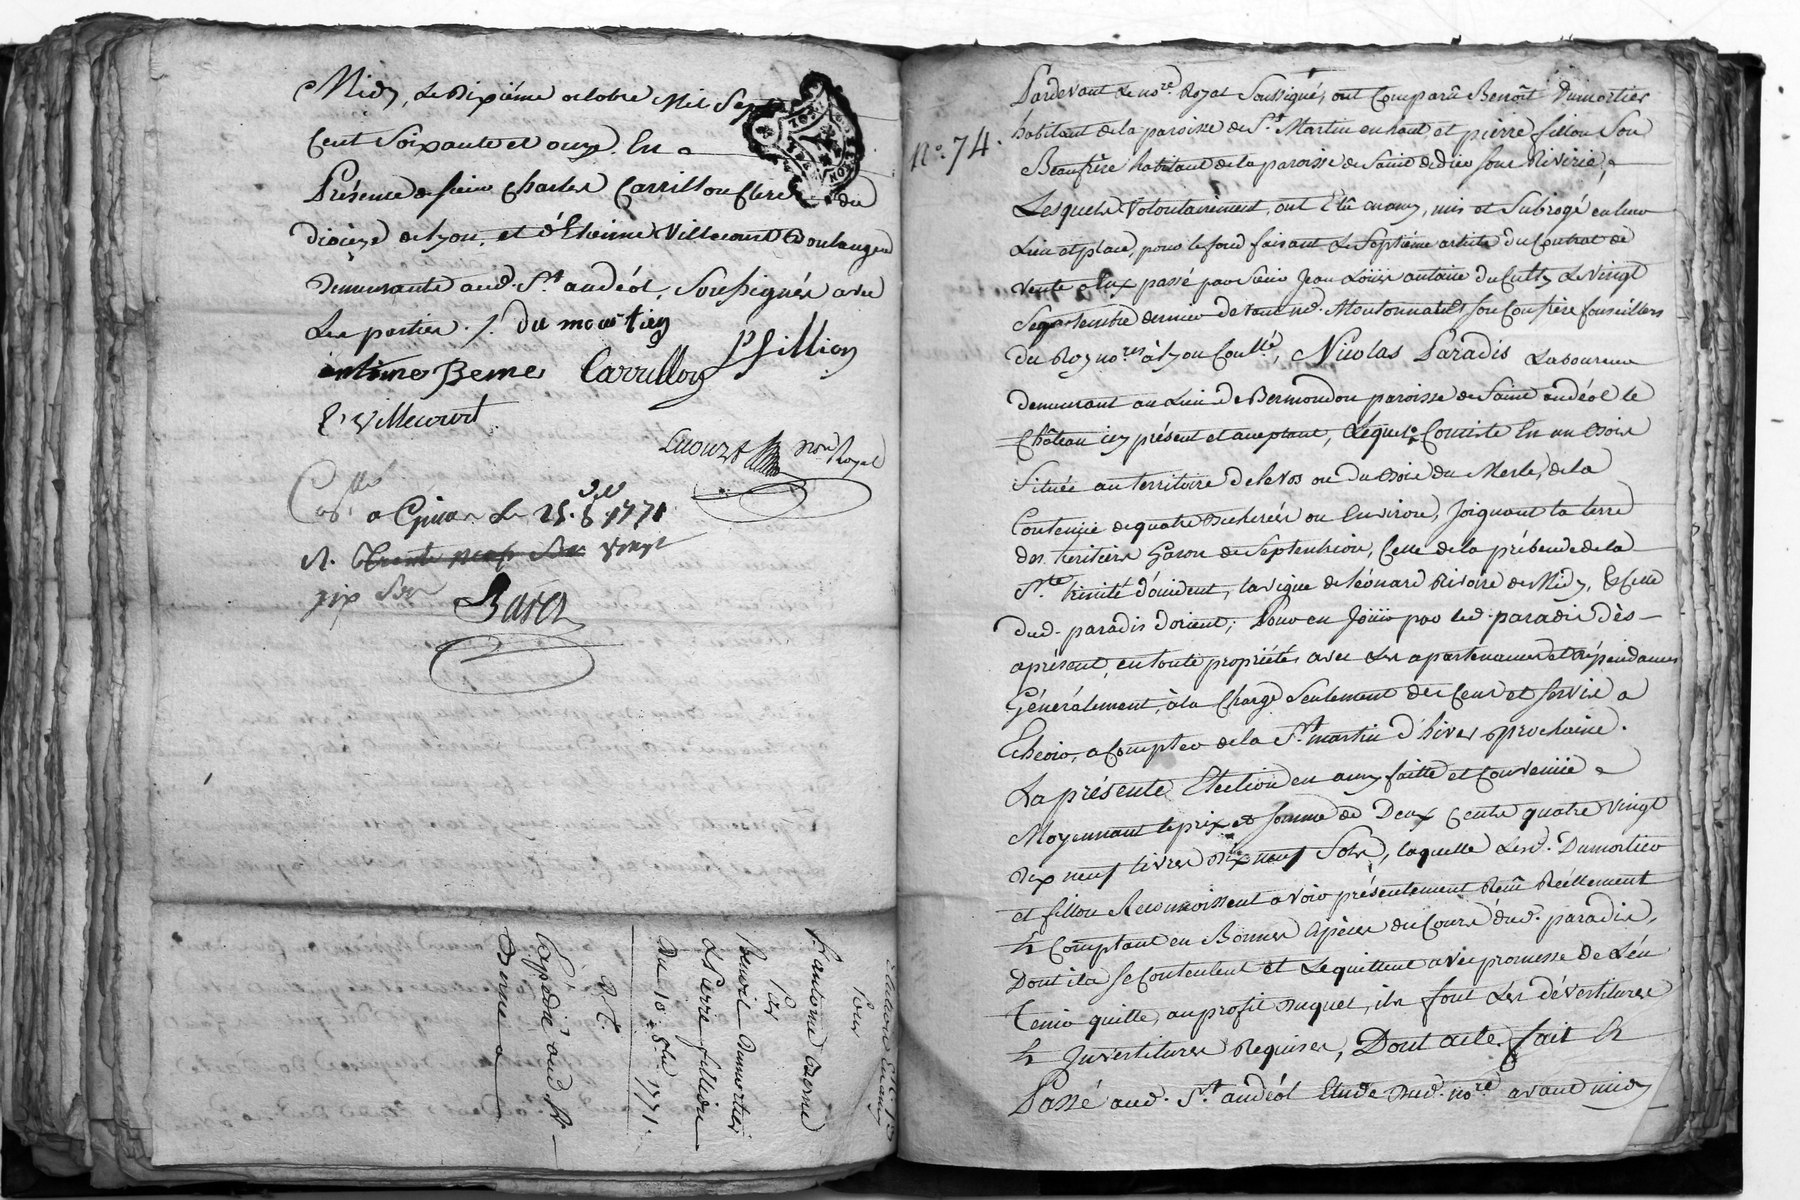 Midy, Le Dixiéme octobre Mil Sept
Cent Soixante et onze. En
Présence de sieur Charles Carrillon Clerc du
diocèze de Lyon, et d'Etienne Villecourt Boulanger
demeurants aud. St. andéol, Soussignés avec
Les parties ./. du mortier
antoine Berne Carrillon P fillion
E. Villecourt
notre Royal
a Givors Le 25. 8 1771
R. vingt
six sols
pour
d'antoine Berne
Par
Benoit Dumortier
& Pierre fillion
Du 10. 8bre 1771.
Expedié aud. Sr
Berne
No. 74.
Pardevant Le nore. Royal Soussigné, ont Comparû Benoît Dumortier
habitant de la paroisse de St. Martin en haut et pierre fillon Son
Beaufrère habitant de la paroisse de Saint didier sous Riverie,
Lesquels Volontairement, ont Elû en amy, mis et Subrogé en leur
Lieu et place, pour le fond faisant Le Septiéme article du Contrat de
vente à Eux passé par Sieur Jean Loüis antoine du Cult, Le Vingt
Septembre dernier devant Me. Montonnat Et son Confrère Conseillers
du Roy nores. à Lyon, Nicolas Paradis Laboureur
demeurant au Lieu de Bermondon paroisse de Saint andéol le
Château icy présent et aceptant, Lequel Consiste En un Bois
Situé au territoire de levos ou du Bois du Merle, de la
Contenüe de quatre Bicherées ou Environ, Joignant la terre
des heritiers garon de Septentrion, Celle de la prébende de la
Ste. trinité d'occident, la vigne de Léonard Rivoire de Midy, & Celle
dud. paradis d'orient; Pour en Joüir par led. paradis dès
aprésent, en toute proprieté, avec Les apartenances et dépendances
Généralement, à la Charge Seulement des Cens et servis a
Echeoir, a Compter de la St. martin d'hiver prochaine.
La présente Election en amy faitte et Convenüe
Moyennant le prix et somme de Deux Cents quatre Vingt
dix neuf Livres dix neuf Sols, laquelle Lesd. Dumortier
et fillon Reconnoissent avoir présentement Reçû Réellement
& Comptant en Bonnes Espèces du Cours dud. paradis,
Dont ils se Contentent et Le quittent avec promesse de L'en
tenir quitte, au profit duquel, ils font Les dévestitures
& Investitures Requises, Dont acte fait &
Passé aud. St. andéol Etude dud. nore. avant midy